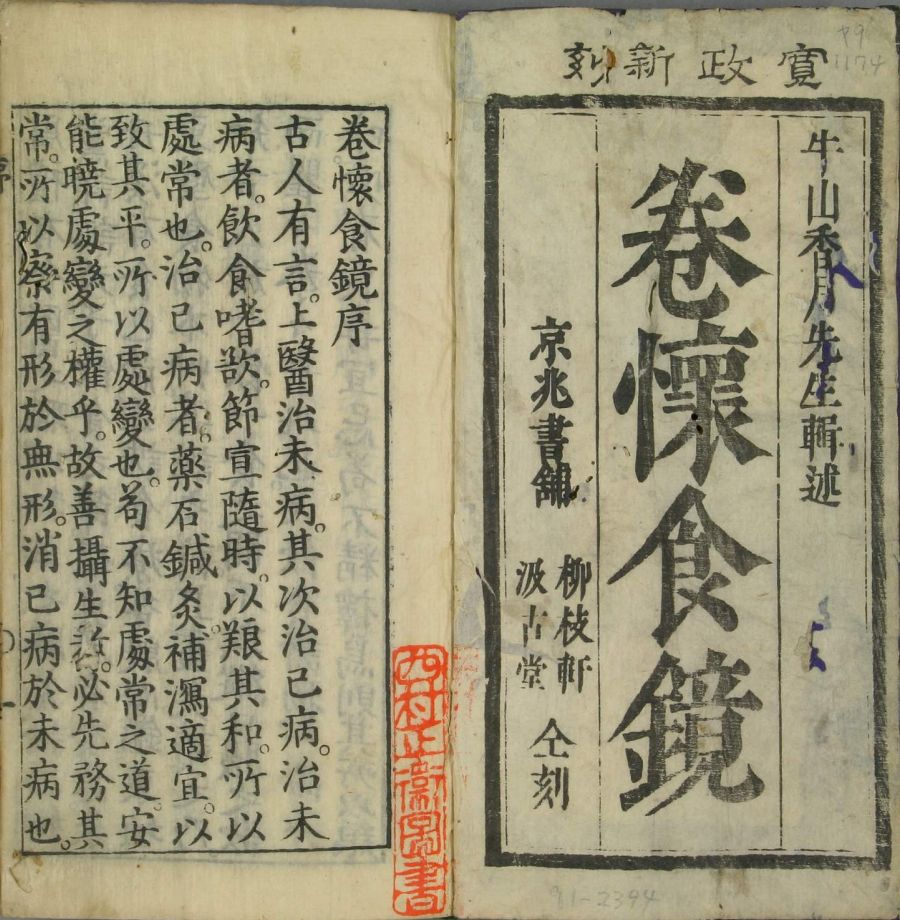 寬政新刻
1174
牛山香月先生輯述
卷懷食鏡
京兆書舖
柳枝軒
汲古堂
仝刻
卷懷食鏡序
古人有言。上醫治未病。其次治已病。治未
病者。飲食嗜欲。節宣隨時。以艱其和。所以
處常也。治已病者。藥石鍼灸。補瀉適宜。以
致其平。所以處變也。苟不知處常之道。安
能曉處變之權乎。故善攝生者。必先務其
常。所以察有形於無形。消已病於未病也。
序
一
西村正衛圖書
91-2394